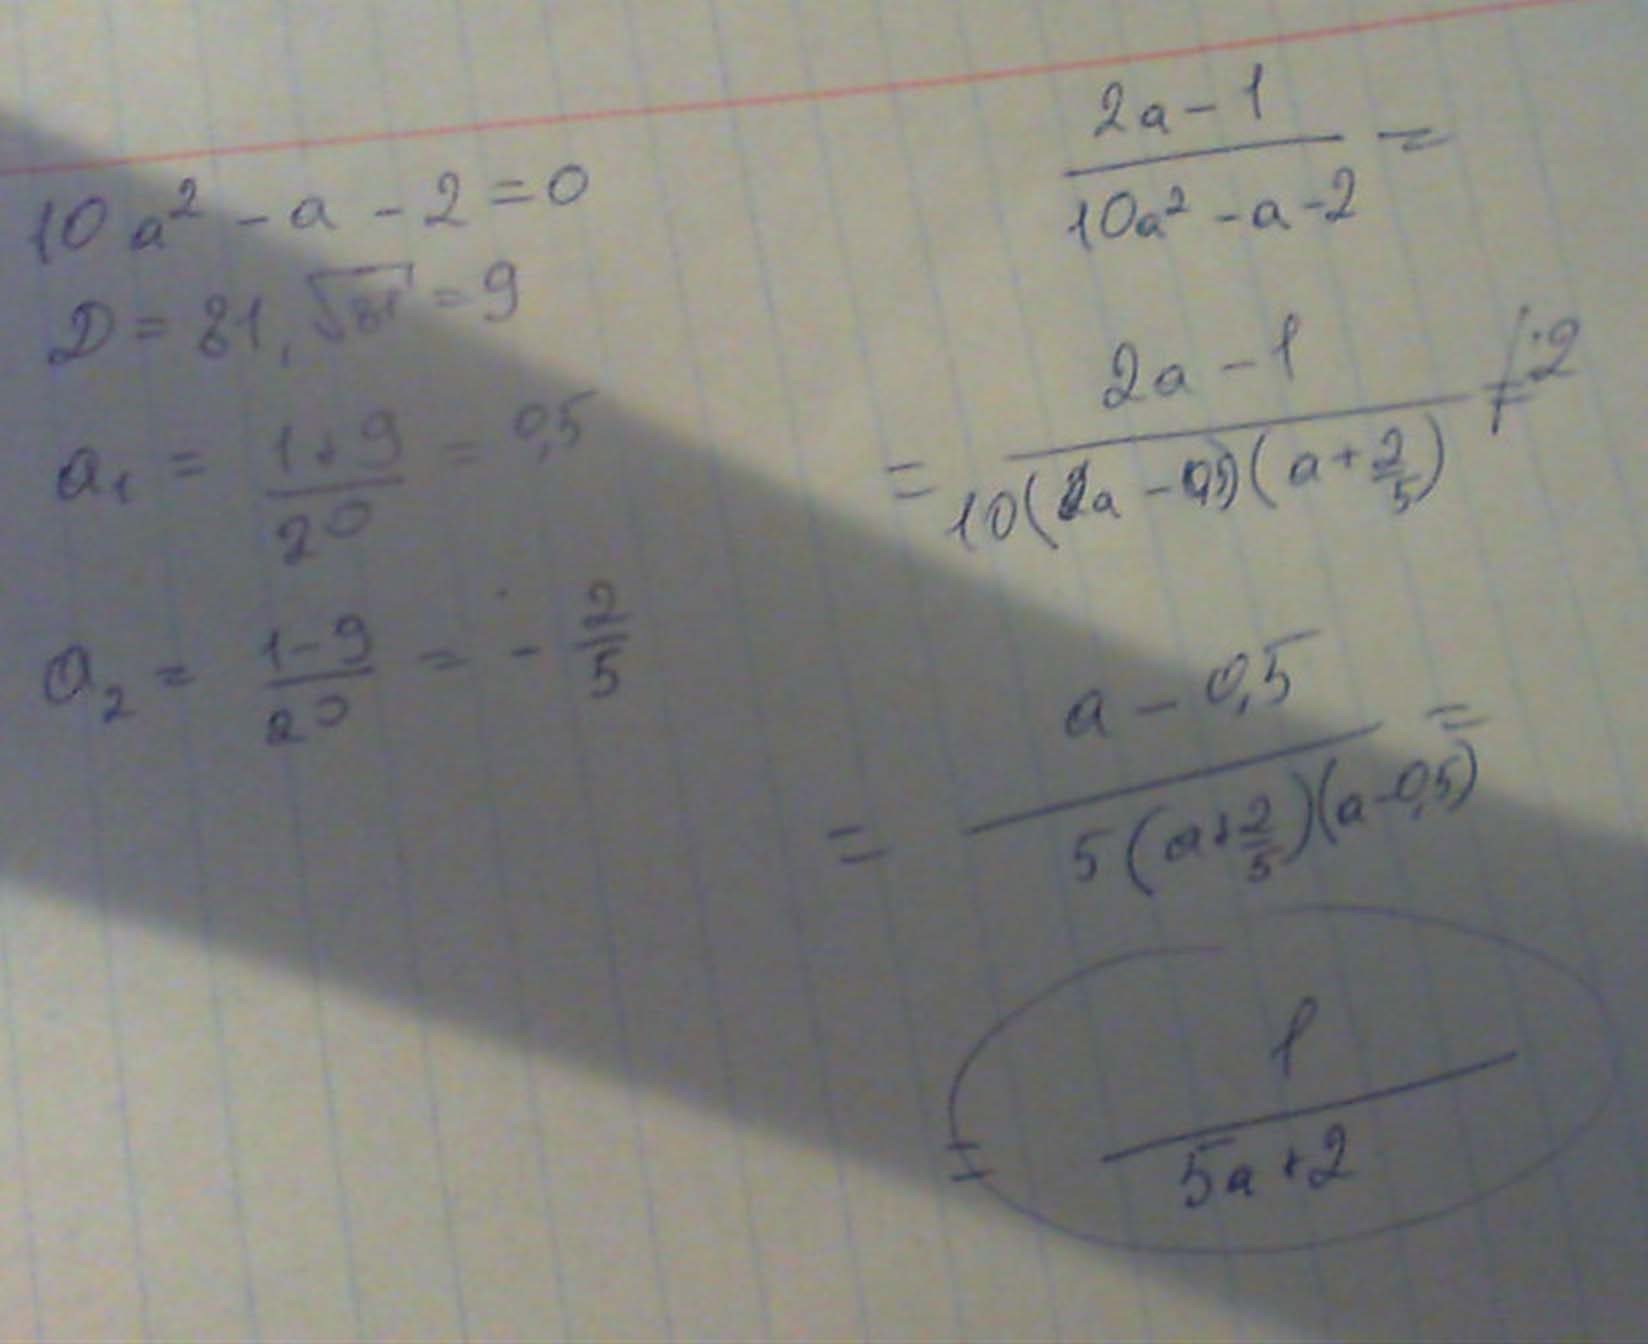 10a² - a - 2 = 0
D = 81, √81 = 9
a₁ = (1+9)/20 = 0,5
a₂ = (1-9)/20 = - 2/5
(2a - 1)/(10a² - a - 2) =
= (2a - 1)/(10(a - 0,5)(a + 2/5)) /:2 =
= (a - 0,5)/(5(a + 2/5)(a - 0,5)) =
= 1/(5a + 2)